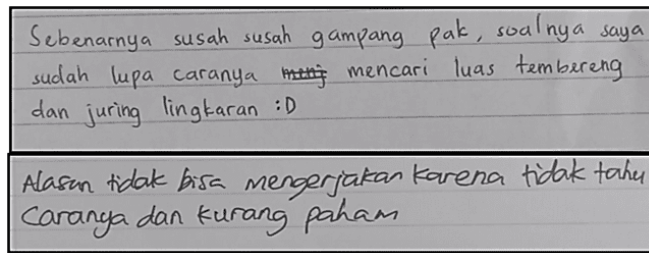 Sebenarnya susah susah gampang pak, soalnya saya
sudah lupa caranya menj mencari luas tembereng
dan juring lingkaran :D
Alasan tidak bisa mengerjakan karena tidak tahu
Caranya dan kurang paham